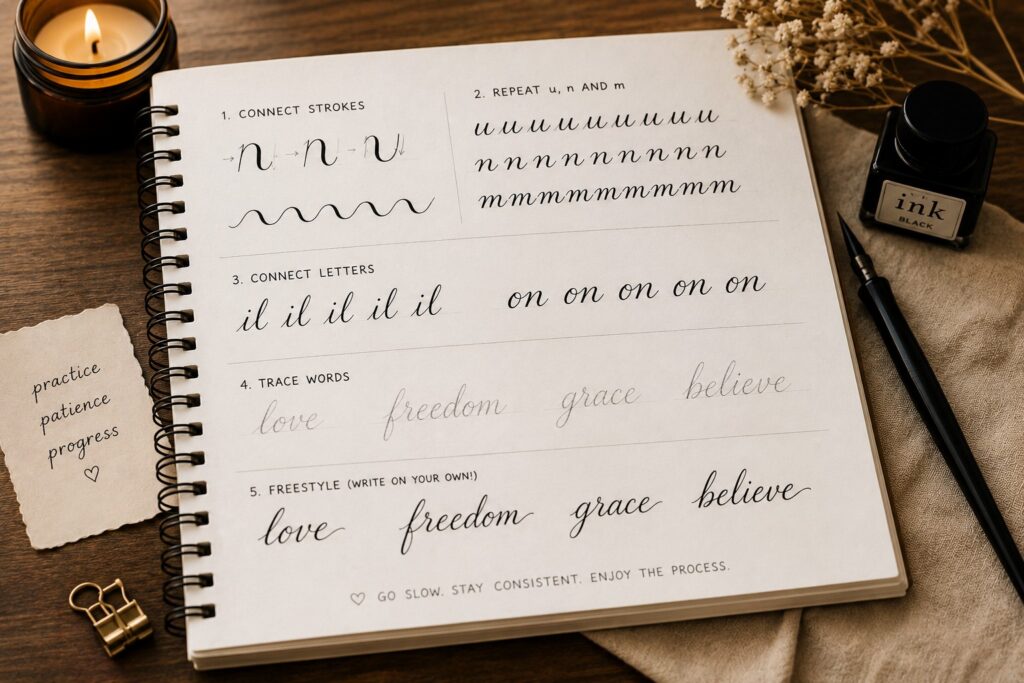 1. CONNECT STROKES
2. REPEAT u, n AND m
u u u u u u u u u
n n n n n n n n n
mmmmmmmmm
3. CONNECT LETTERS
il il il il il
on on on on on
4. TRACE WORDS
love freedom grace believe
5. FREESTYLE (WRITE ON YOUR OWN!)
love freedom grace believe
♡ GO SLOW. STAY CONSISTENT. ENJOY THE PROCESS.
practice
patience
progress
♡
ink
BLACK